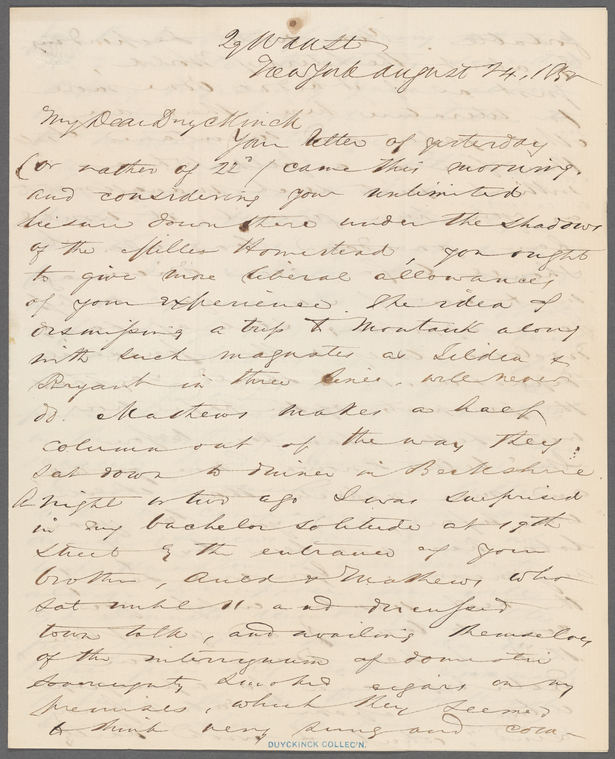 29 Wall St
New York August 24, 185
My Dear Duyckinck
Your letter of yesterday
(or rather of 22d) came this morning,
and considering your unlimited
leisure down there under the shadows
of the Miller Homestead, you ought
to give more liberal allowances
of your experience. The idea of
dismissing a trip to Montauk along
with such magnates as Tilden &
Bryant in three lines, will never
do. Mathews makes a half
column out of the way they
sat down to dinner in Berkshire.
A night or two ago I was surprised
in my bachelor solitude at 19th
Street by the entrance of your
brother, & Mathews who
sat until 11 and discussed
town talk, and availing themselves
of the interregnum of domestic
sovereignty smoked cigars on my
premises, which they seemed
to think very snug and com-
DUYCKINCK COLLEC'N.